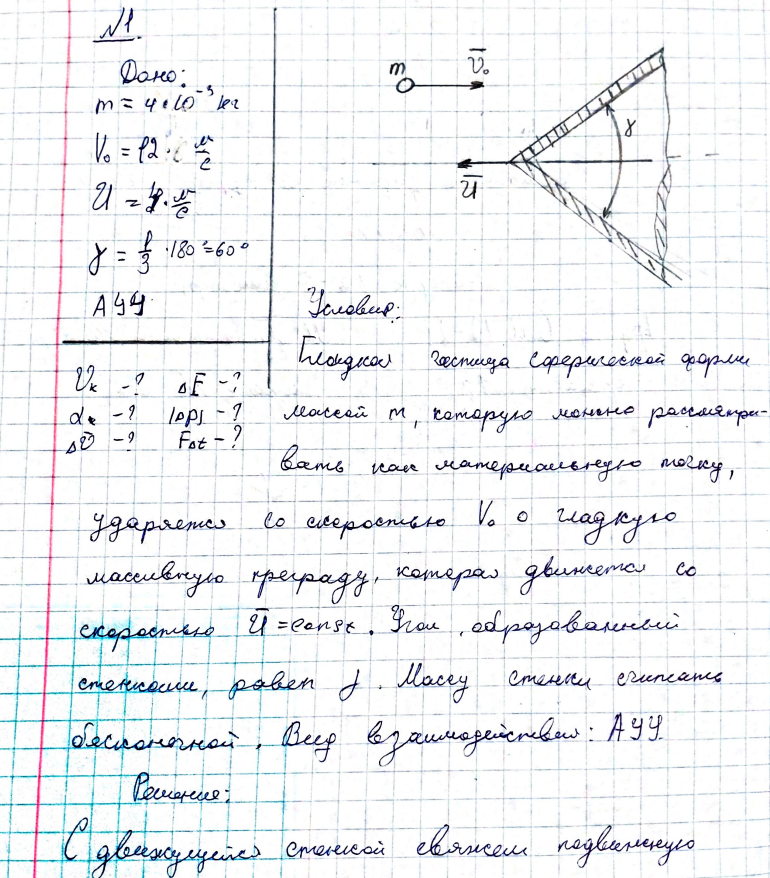 №1.
Дано:
m = 4·10⁻³ кг
V₀ = 12 · м/с
U = · м/с
γ = 1/3 · 180° = 60°
АУУ
Vк - ? ΔE - ?
αк - ? |ΔP| - ?
Δv̄ - ? FΔt - ?
m V̄₀
γ
Ū
Условия:
Гладкая частица сферической формы
массой m, которую можно рассматри-
вать как материальную точку,
ударяется со скоростью V₀ о гладкую
массивную преграду, которая движется со
скоростью Ū = const. Угол, образованный
стенками, равен γ. Массу стенки считать
бесконечной. Вид взаимодействия: АУУ
Решение:
С движущейся стенкой свяжем подвижную